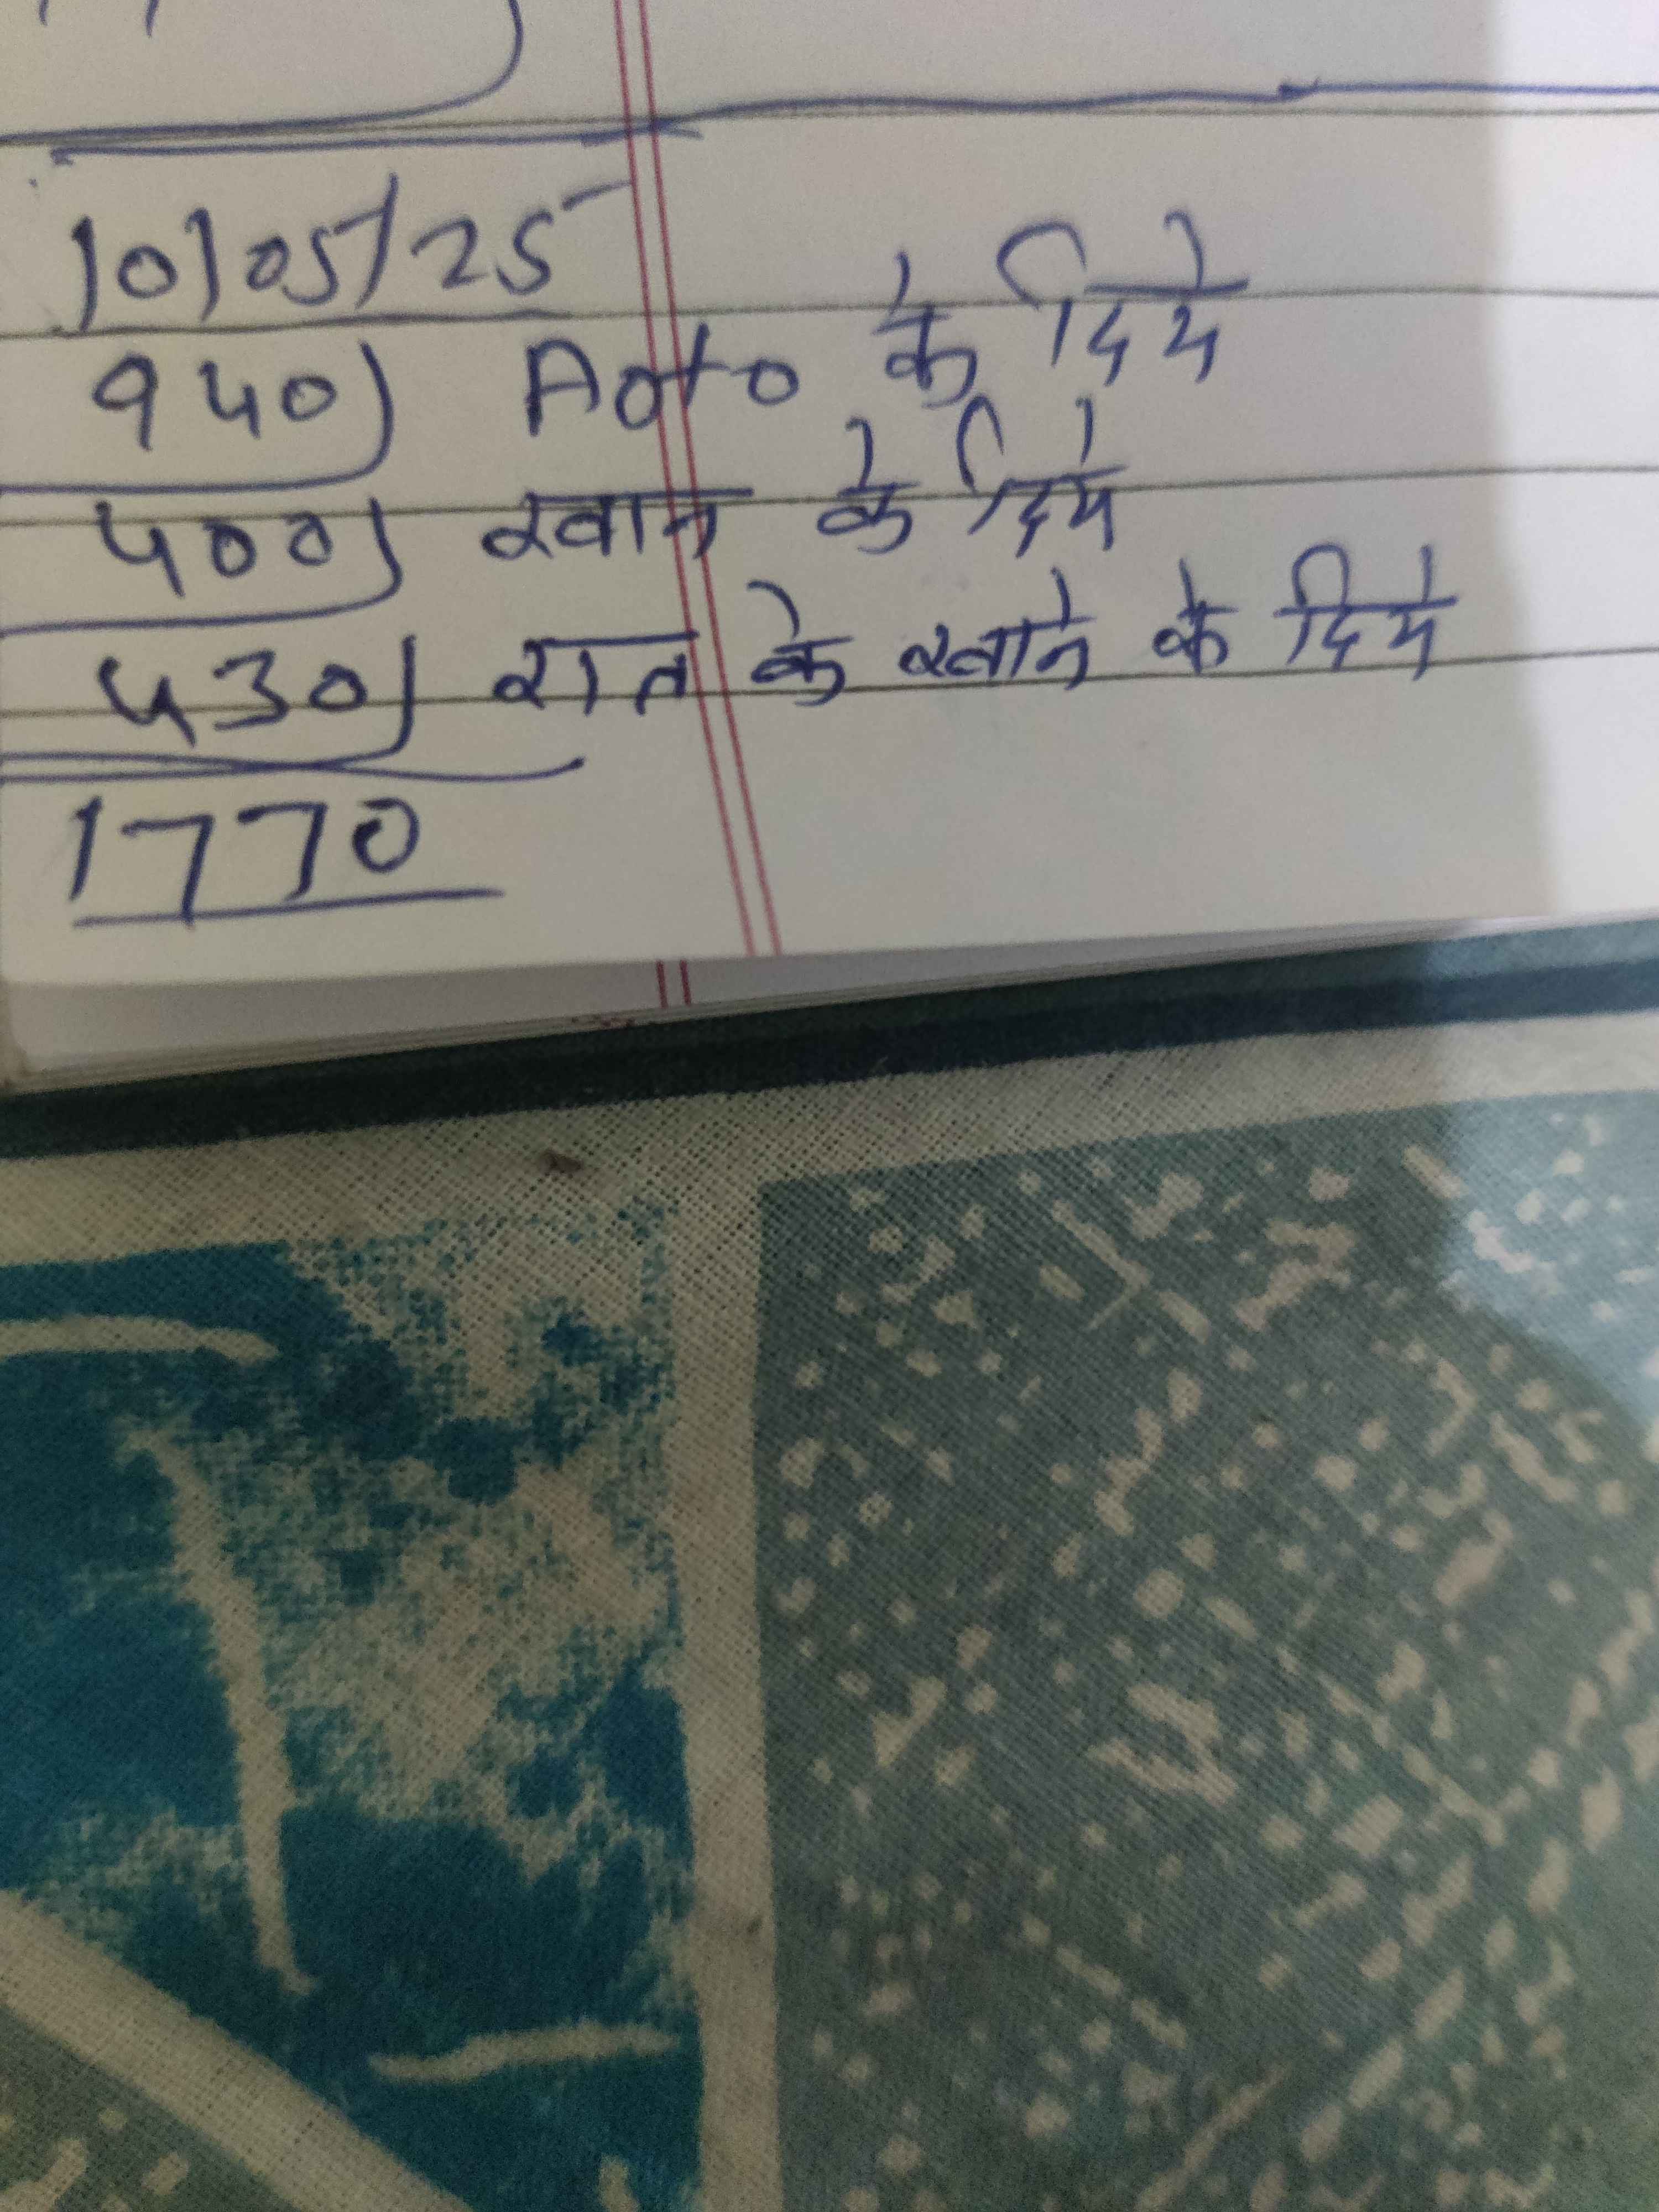 10/05/25
940) Aoto के दिये
400) खान के दिये
430) रात के खाने के दिये
1770